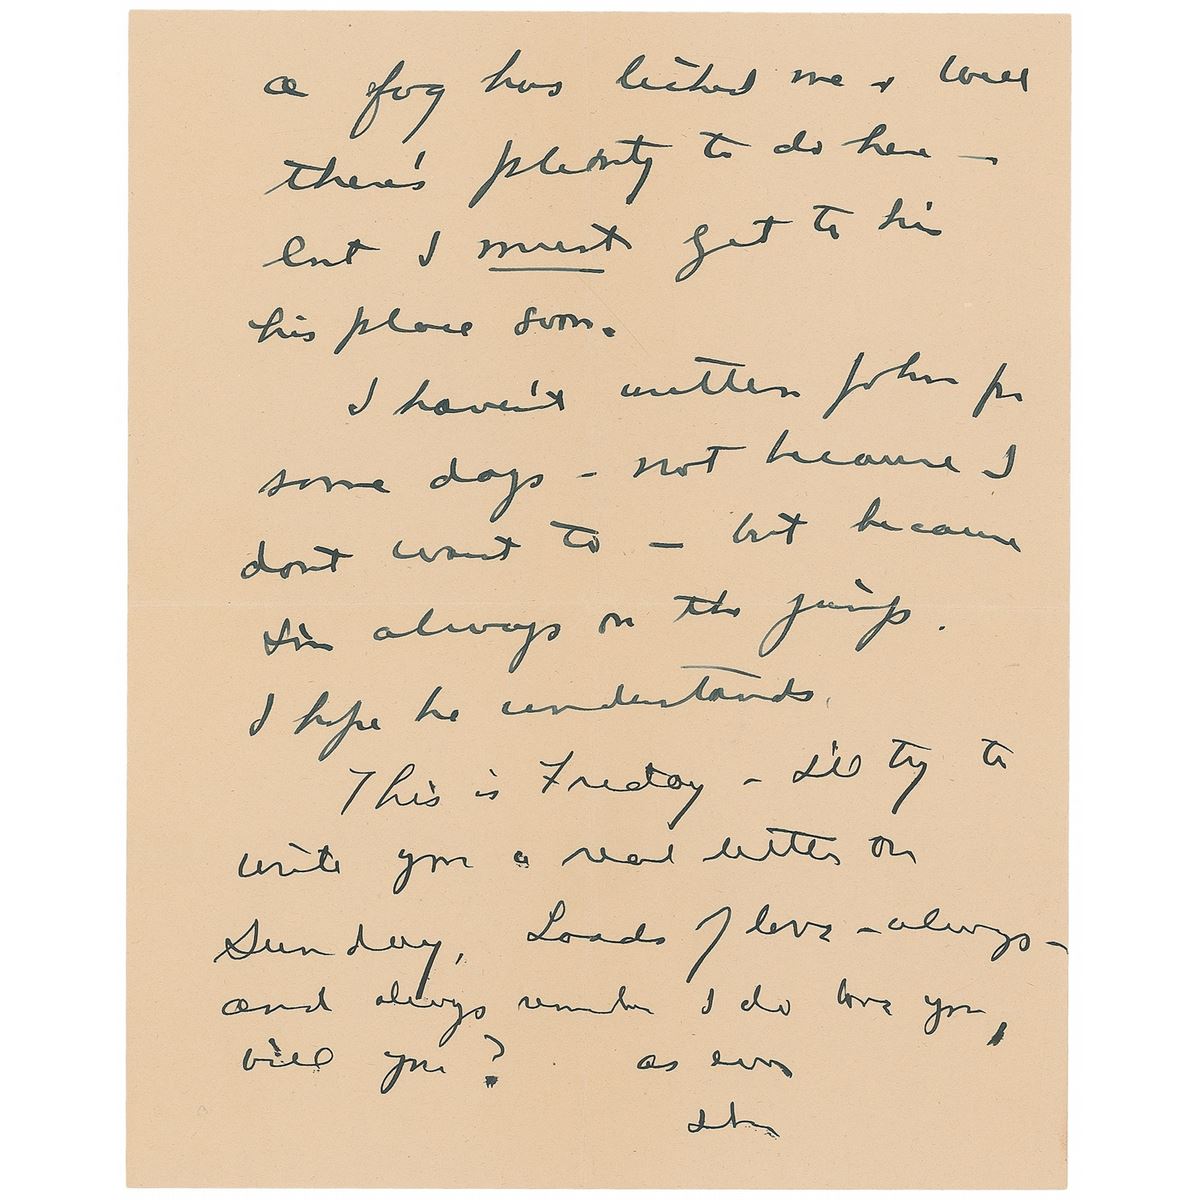 a fog has licked me & well
there's plenty to do here —
but I must get to his
his place soon.
I haven't written John for
some days - not because I
dont want to — but because
I'm always on the jump.
I hope he understands.
This is Friday - I'll try to
write you a real letter on
Sunday, Loads of love - always -
and always remember I do love you,
will you? as ever